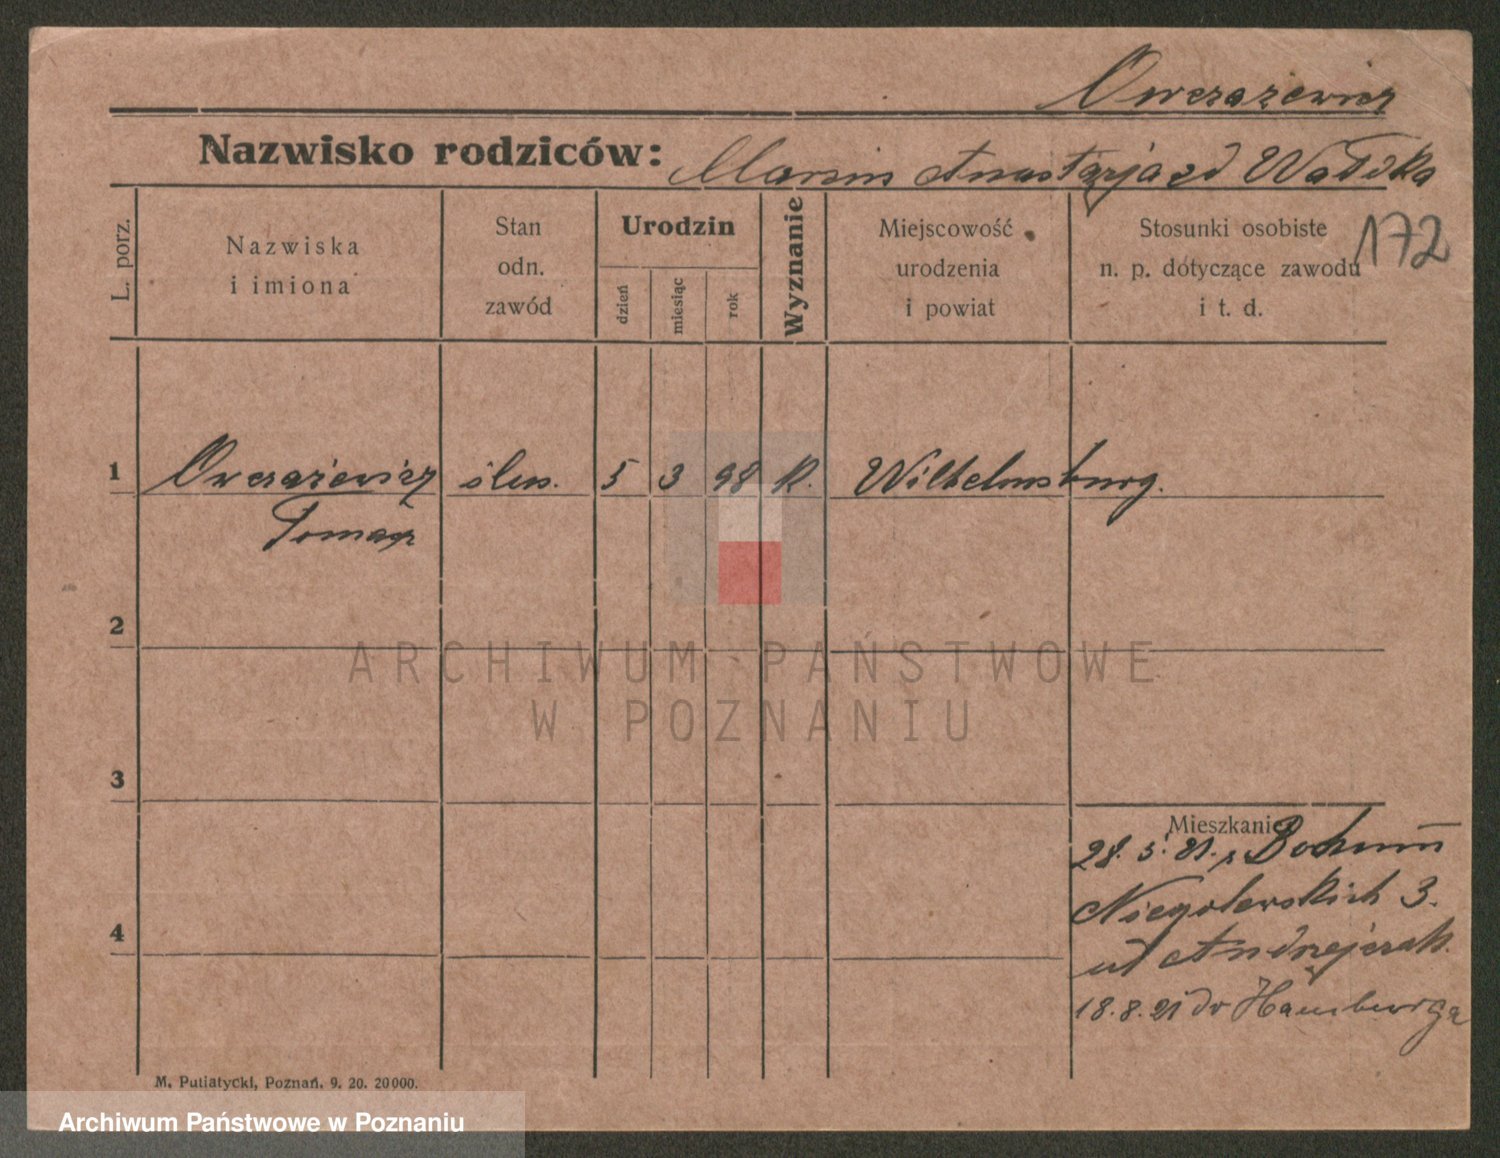 Owczażewicz
Nazwisko rodziców: Marcin Anastazja zd
172
L. porz.
Nazwiska
i imiona
Stan
odn.
zawód
Urodzin
dzień
miesiąc
rok
Wyznanie
Miejscowość
urodzenia
i powiat
Stosunki osobiste
n. p. dotyczące zawodu
i t. d.
1 Owczażewicz ślus. 5 3 98 K. Wilhelmsburg.
Tomasz
2
ARCHIWUM PAŃSTWOWE
W POZNANIU
3
Mieszkanie
28. 5. 21. z Bochum
4
Niegolewskich 3.
u Andrzejczak.
18. 8. 21 do Hamburga
M. Putiatycki, Poznań. 9. 20. 20000.
Archiwum Państwowe w Poznaniu